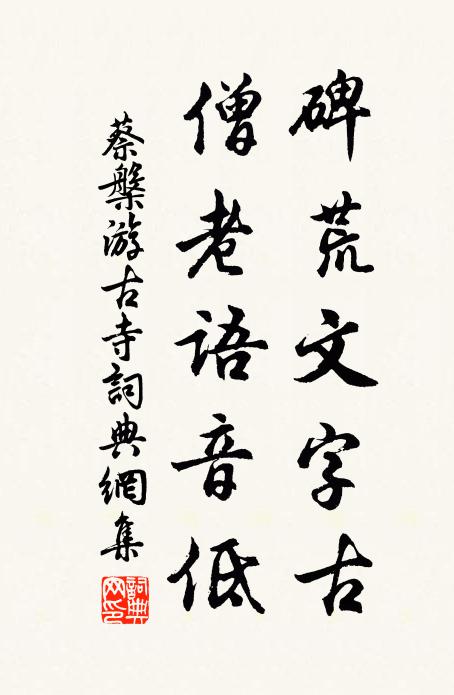 碑荒文字古
僧老語音低
蔡槃游古寺詞典網集
詞典網印